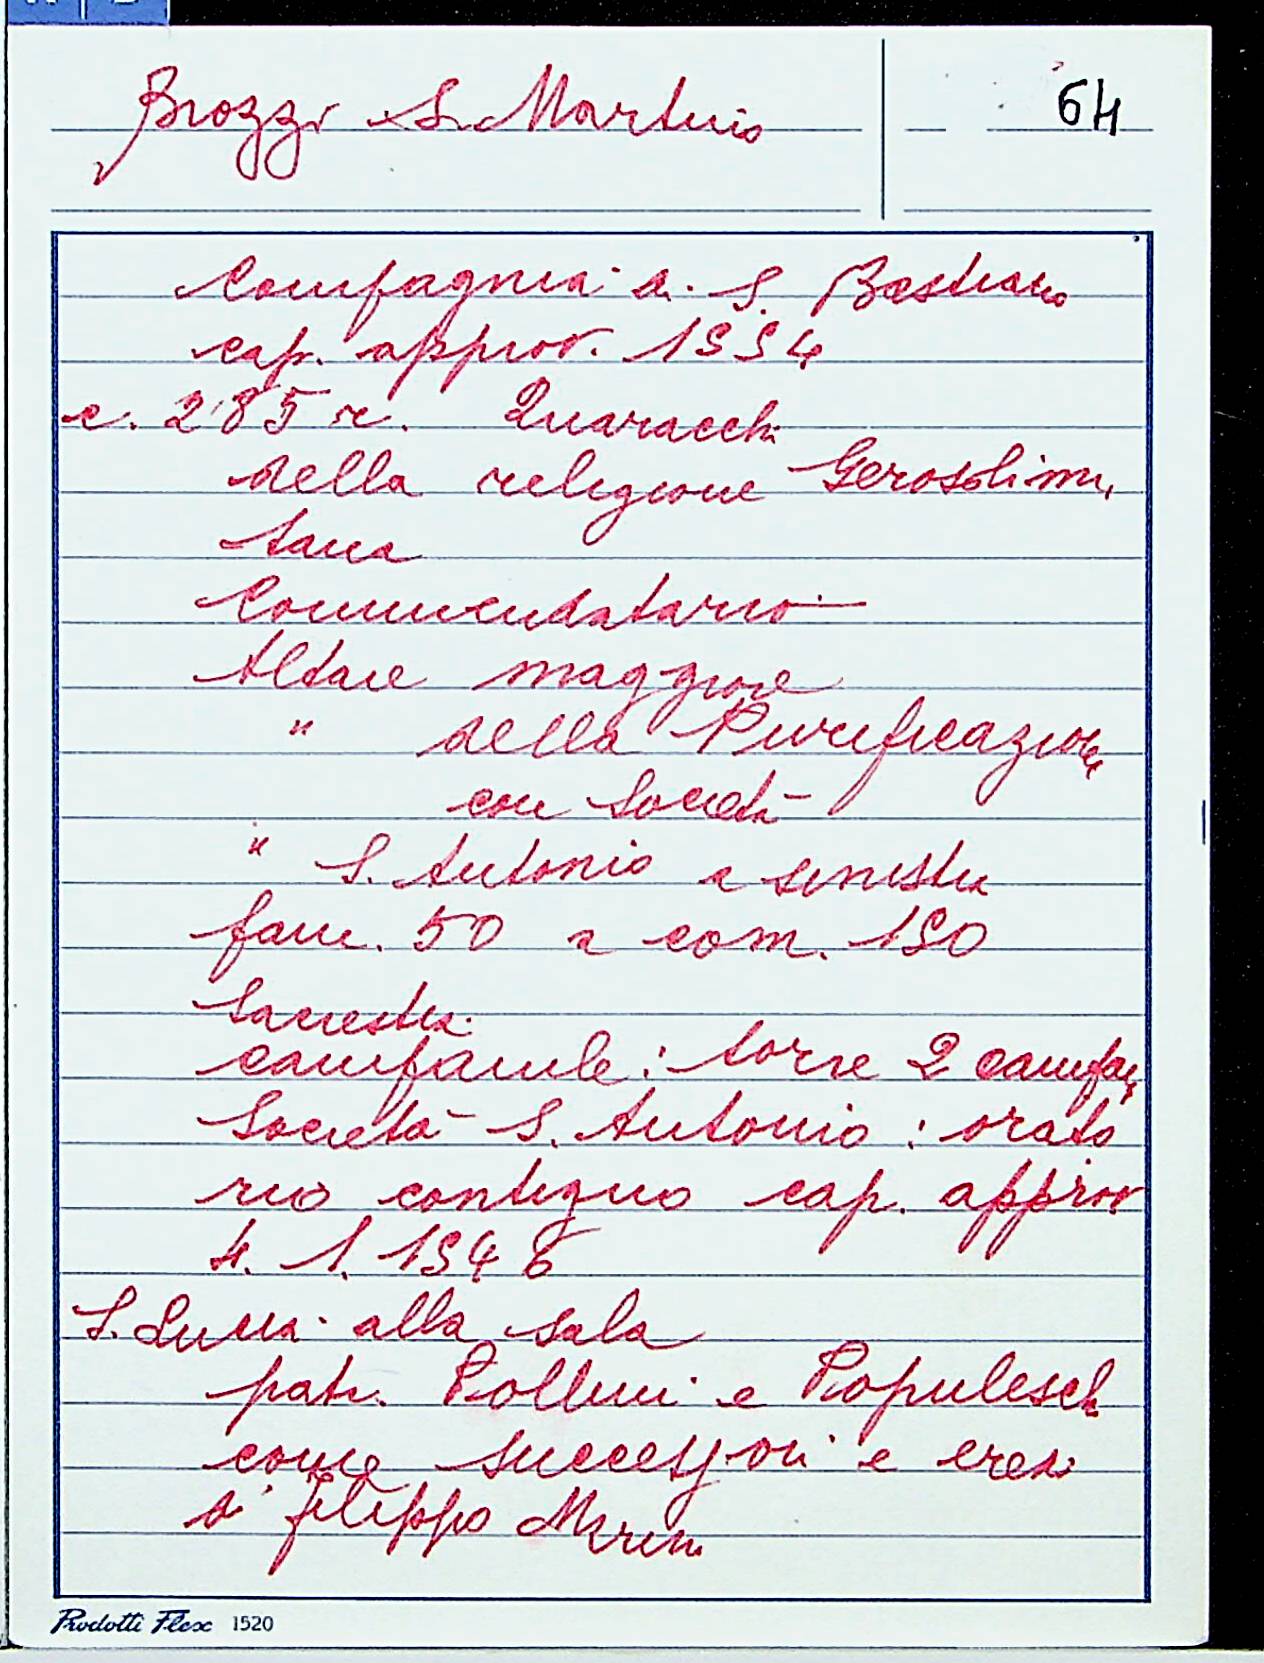 Brozzi S. Martino
64
Compagnia di S. Bastiano
cap. approv. 1554
c. 285 r. Quaracchi
della religione Gerosolimi
tana
Commendatario
Altare maggiore
" della Purificazione
con Società
" S. Antonio a sinistra
fam. 50 a com. 150
Sacrestia
campanile: torre 2 campa
Società S. Antonio: orato
rio contiguo cap. approv
4. 1. 1546
S. Lucia alla sala
patr. e Populeschi
come successori e eredi
di Filippo
Prodotti Flex 1520